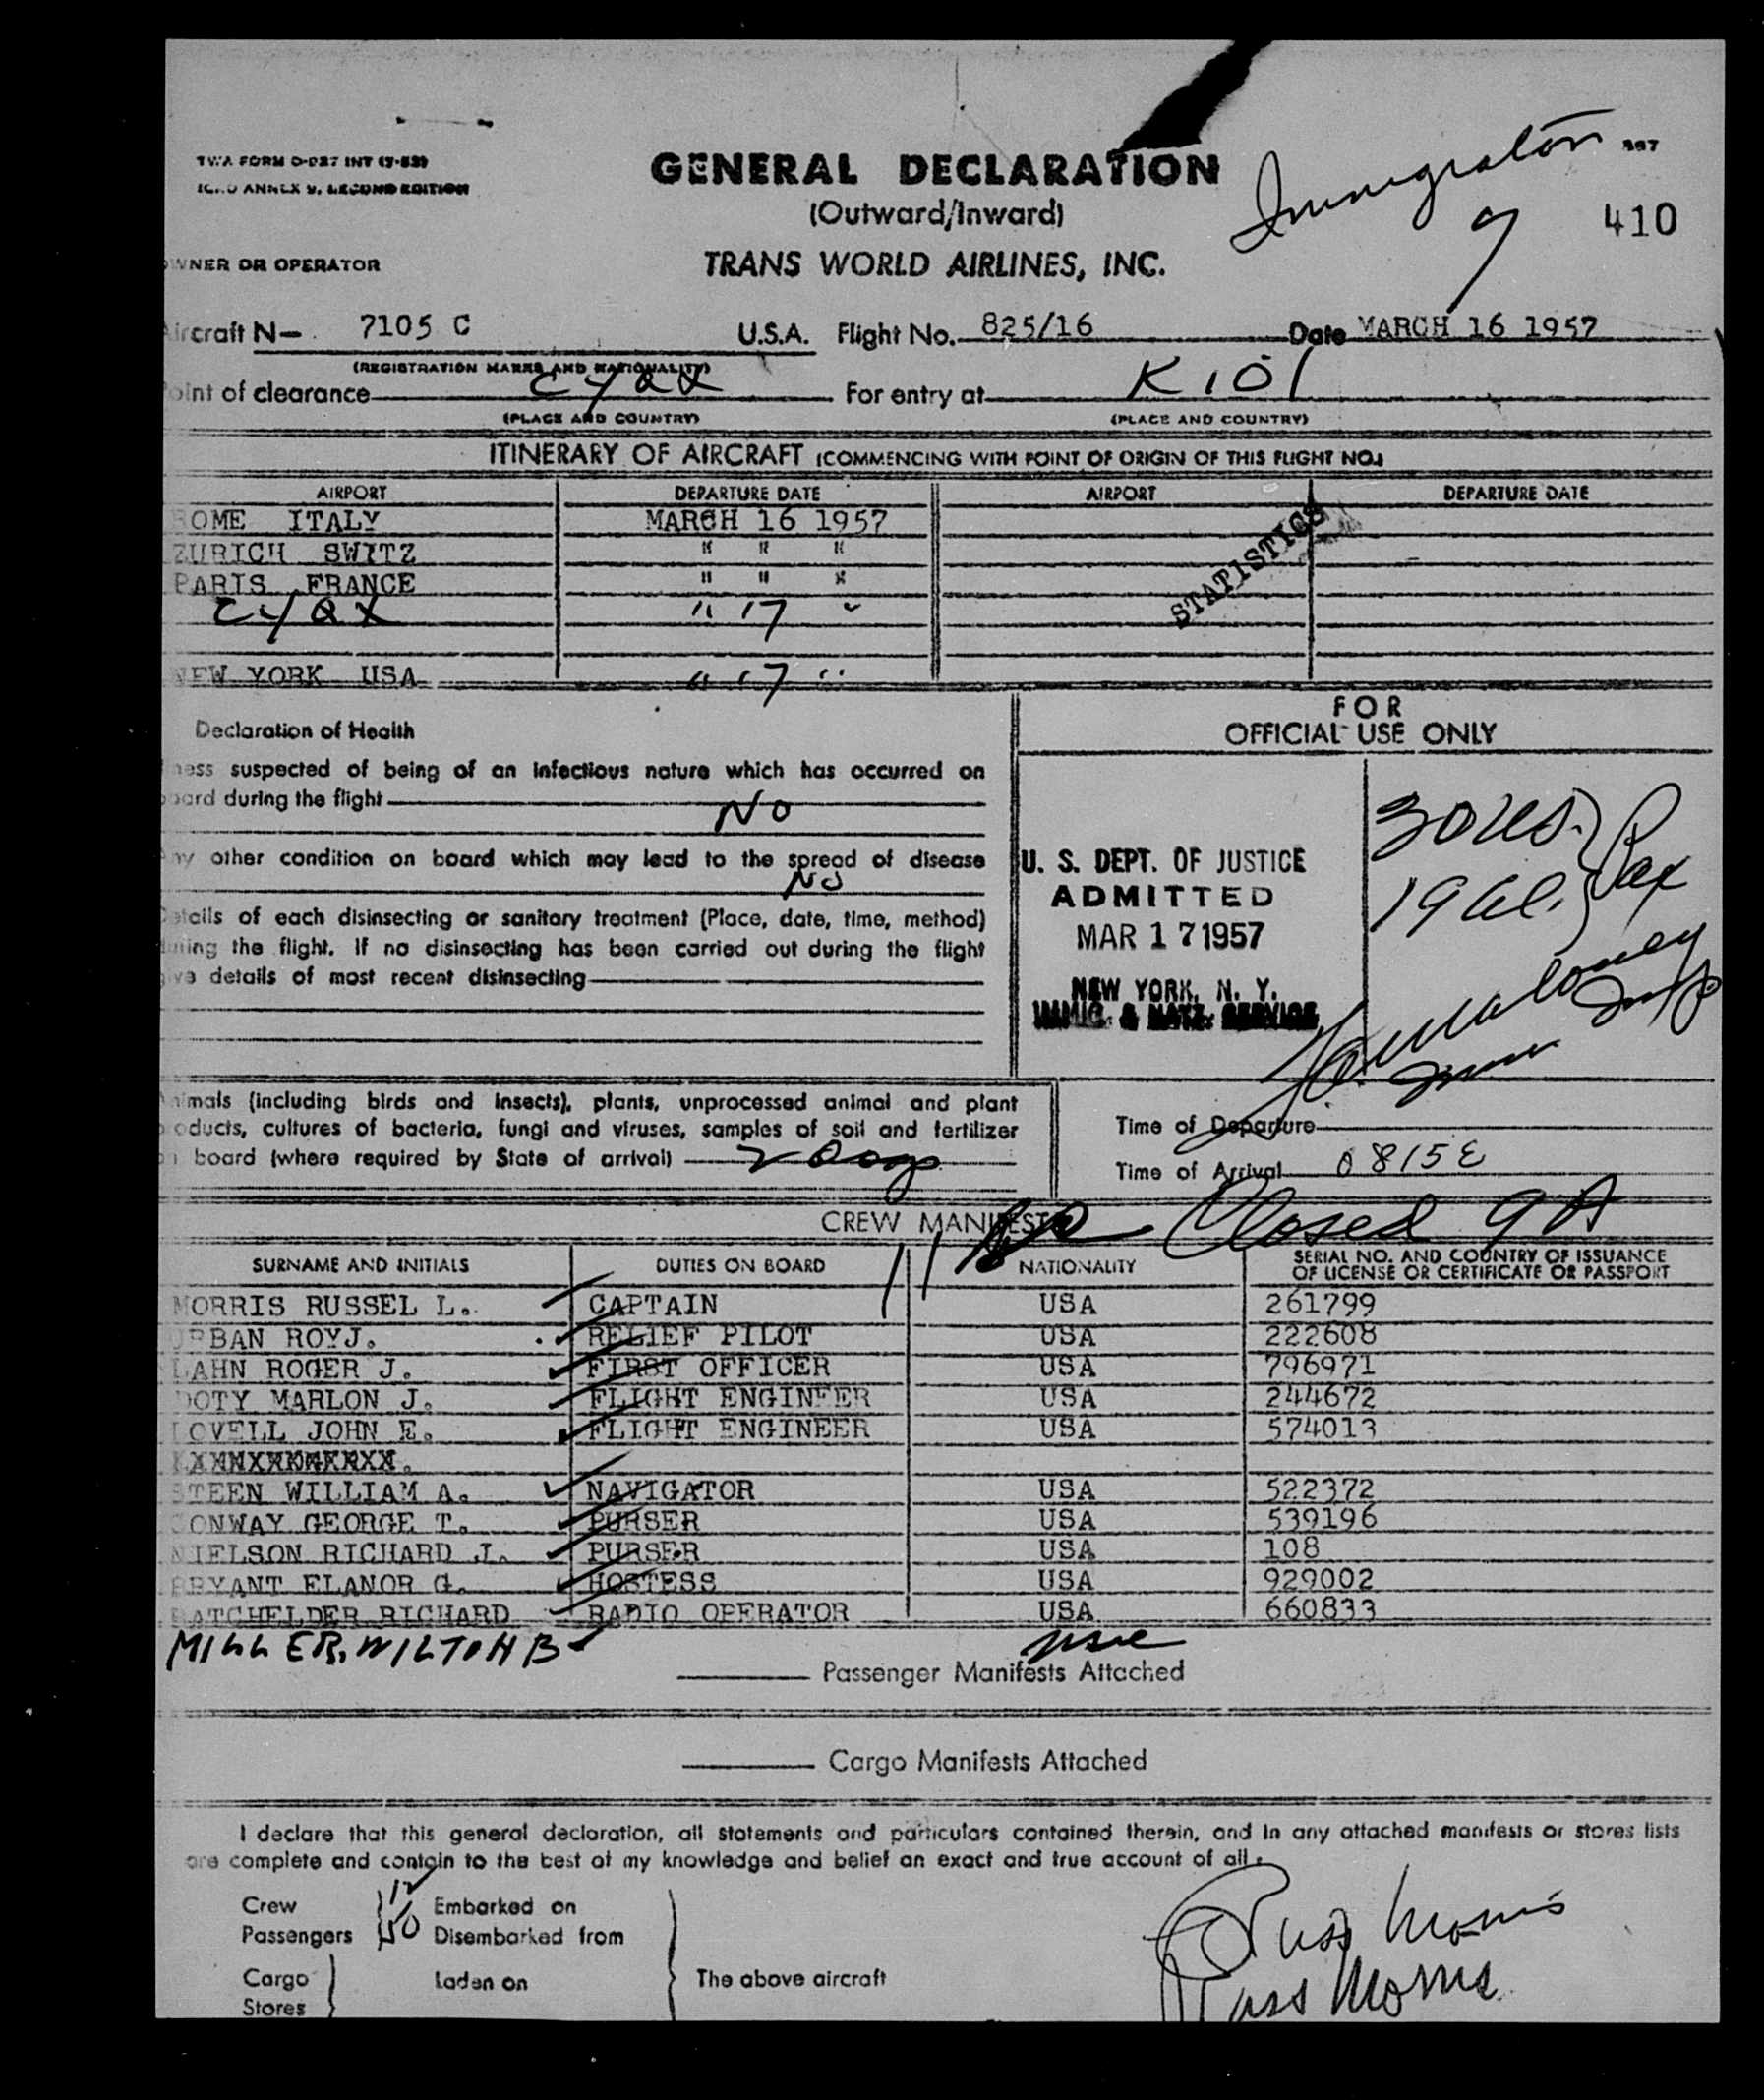 TWA FORM O-027 INT (7-53)
ICAO ANNEX 9, SECOND EDITION
GENERAL DECLARATION
(Outward/Inward)
Immigration
9
410
OWNER OR OPERATOR
TRANS WORLD AIRLINES, INC.
Aircraft N- 7105 C U.S.A. Flight No. 825/16 Date MARCH 16 1957
(REGISTRATION MARKS AND NATIONALITY)
Point of clearance CYQX For entry at
(PLACE AND COUNTRY) (PLACE AND COUNTRY)
ITINERARY OF AIRCRAFT (COMMENCING WITH POINT OF ORIGIN OF THIS FLIGHT NO.)
AIRPORT DEPARTURE DATE AIRPORT DEPARTURE DATE
ROME ITALY MARCH 16 1957
ZURICH SWITZ " " "
PARIS FRANCE " " "
CYQX " 17 "
STATISTICS
NEW YORK USA " 17 "
FOR
OFFICIAL USE ONLY
Declaration of Health
ness suspected of being of an infectious nature which has occurred on
board during the flight NO
Any other condition on board which may lead to the spread of disease
NO
Details of each disinsecting or sanitary treatment (Place, date, time, method)
during the flight. If no disinsecting has been carried out during the flight
give details of most recent disinsecting
30 US.
19 Al. Pax
U. S. DEPT. OF JUSTICE
ADMITTED
MAR 17 1957
NEW YORK, N. Y.
IMMIG. & NATZ. SERVICE
Animals (including birds and insects), plants, unprocessed animal and plant
products, cultures of bacteria, fungi and viruses, samples of soil and fertilizer
on board (where required by State of arrival) 2 Dogs
Time of Departure
Time of Arrival 0815E
CREW MANIFEST Closed 9A
SURNAME AND INITIALS DUTIES ON BOARD NATIONALITY SERIAL NO. AND COUNTRY OF ISSUANCE
OF LICENSE OR CERTIFICATE OR PASSPORT
MORRIS RUSSEL L. CAPTAIN USA 261799
URBAN ROYJ. RELIEF PILOT USA 222608
LAHN ROGER J. FIRST OFFICER USA 796971
DOTY MARLON J. FLIGHT ENGINEER USA 244672
LOVELL JOHN E. FLIGHT ENGINEER USA 574013
STEEN WILLIAM A. NAVIGATOR USA 522372
CONWAY GEORGE T. PURSER USA 539196
NIELSON RICHARD J. PURSER USA 108
BRYANT ELANOR G. HOSTESS USA 929002
BATCHELDER RICHARD RADIO OPERATOR USA 660833
MILLER, WILTON B
Passenger Manifests Attached
Cargo Manifests Attached
I declare that this general declaration, all statements and particulars contained therein, and in any attached manifests or stores lists
are complete and contain to the best of my knowledge and belief an exact and true account of all:
Crew Embarked on
Passengers Disembarked from
Cargo Laden on The above aircraft
Stores
Russ Morris
Russ Morris